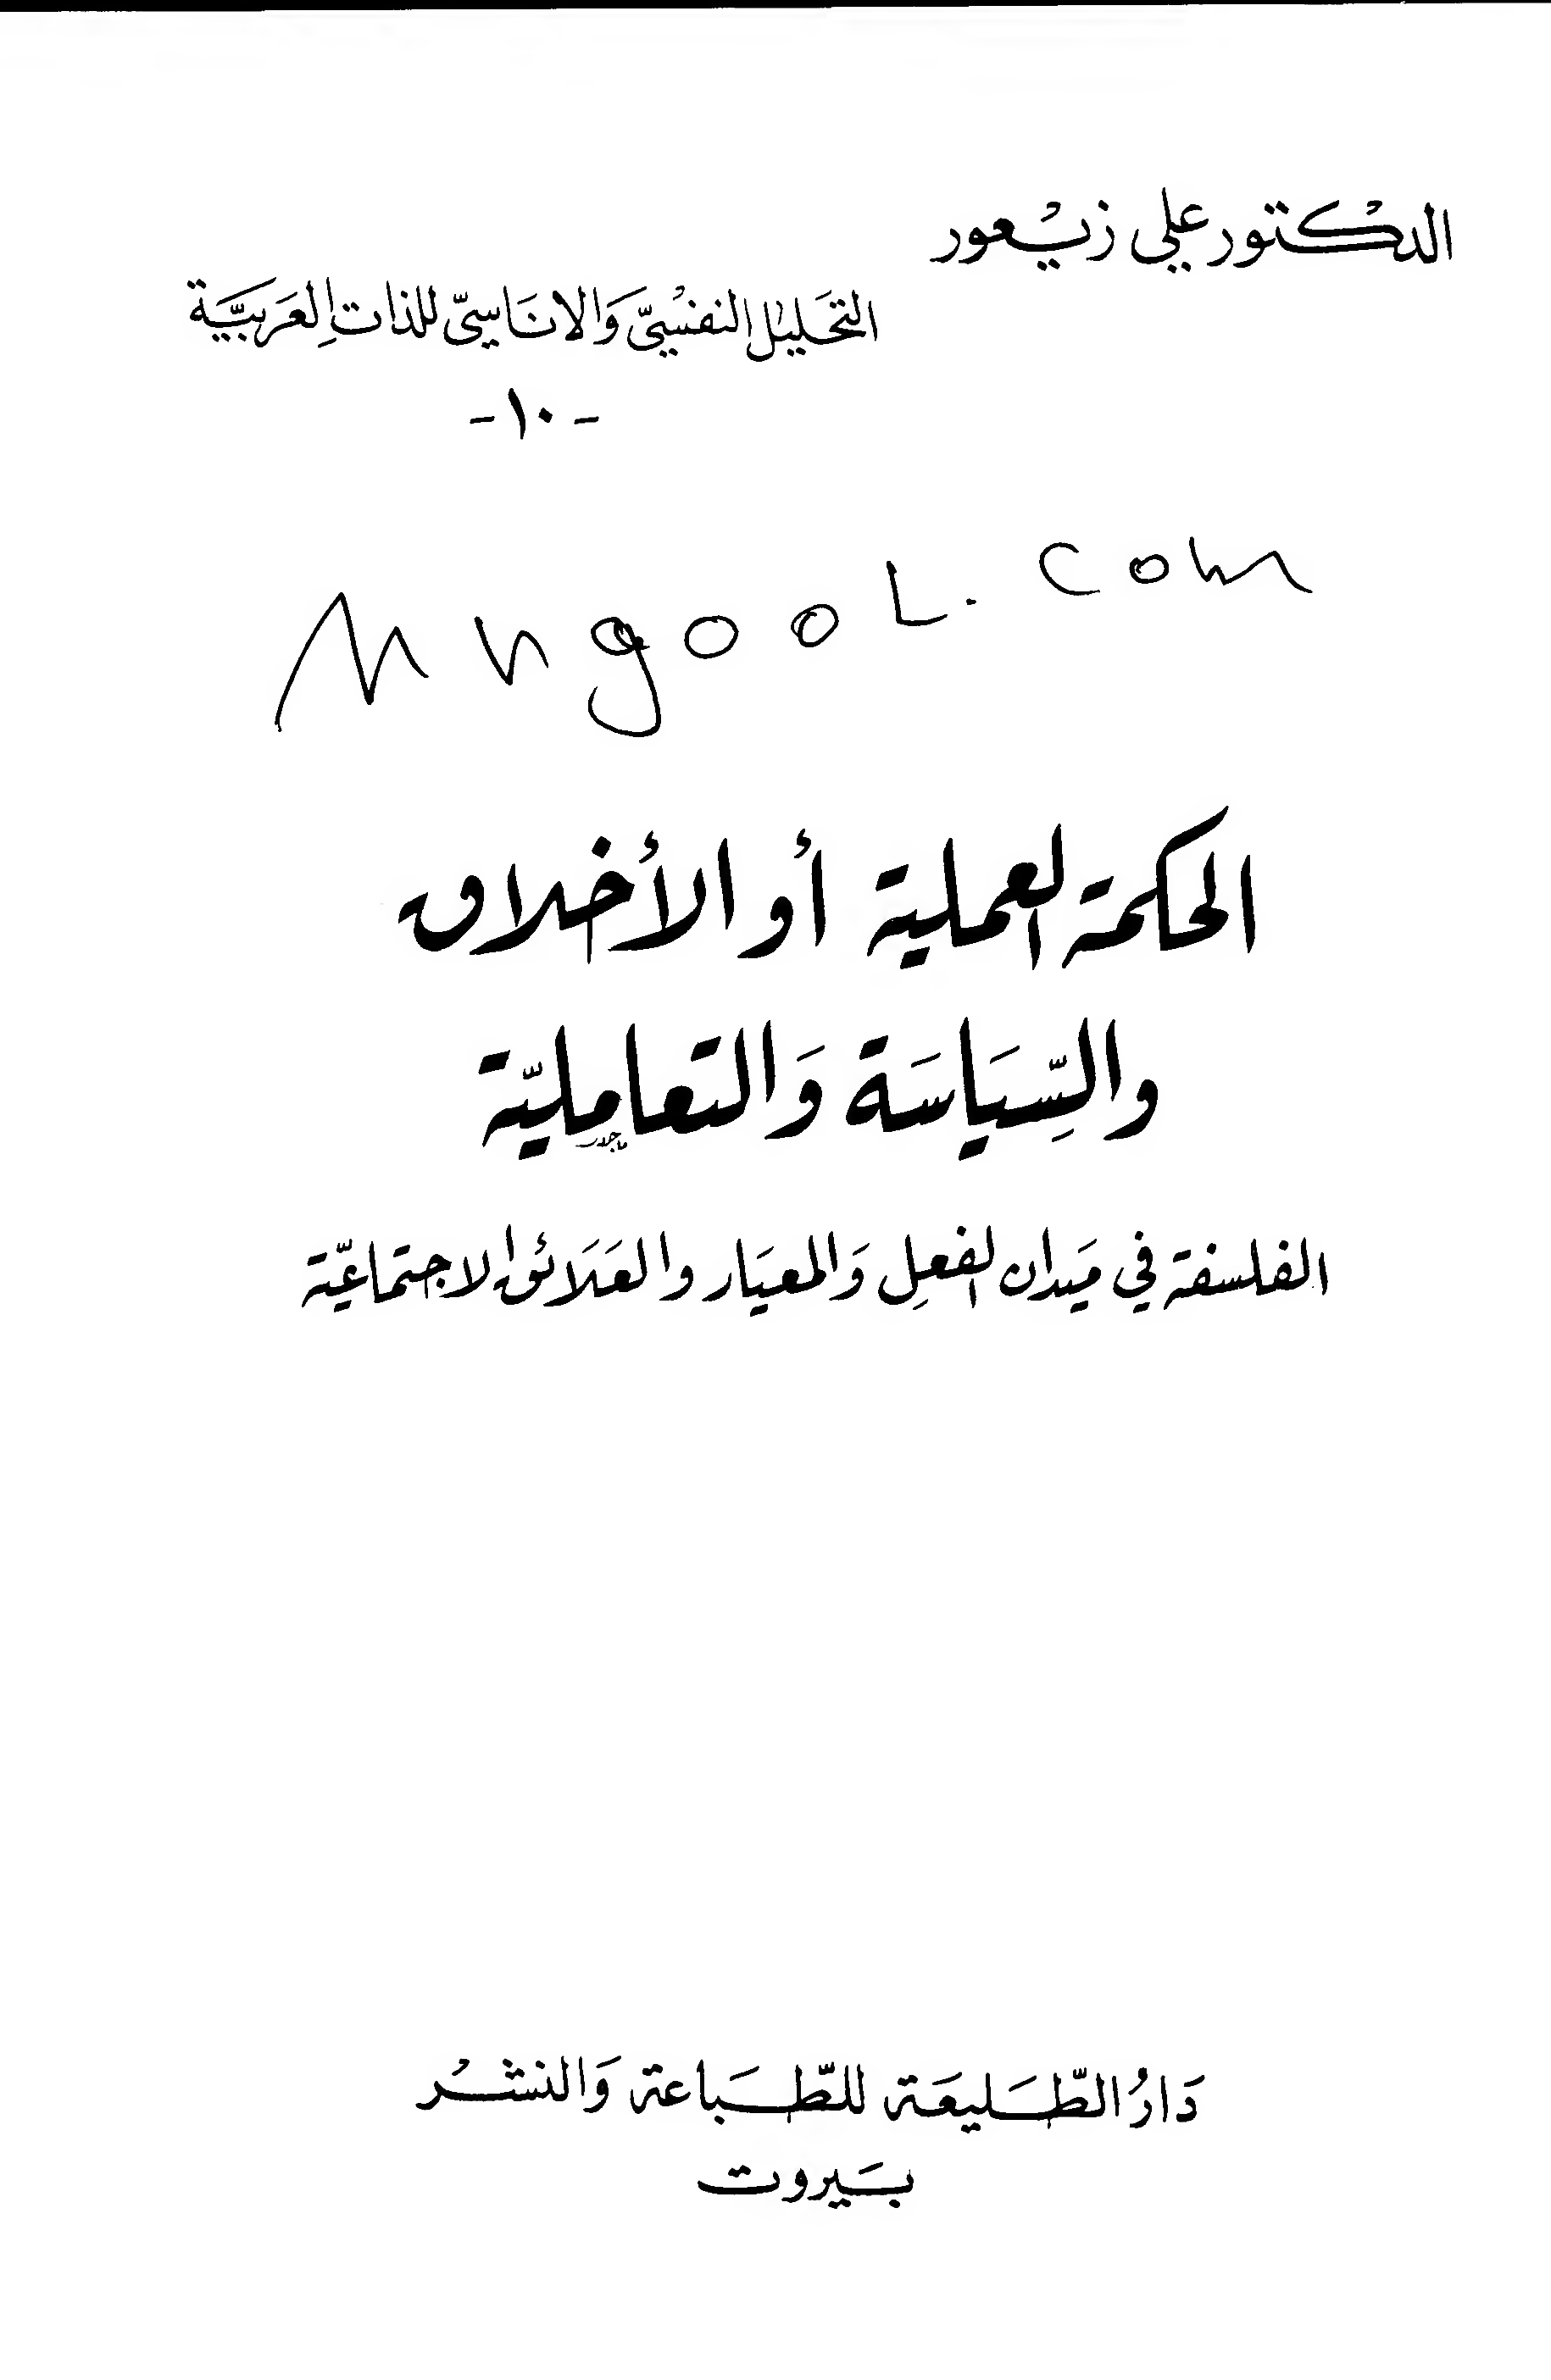 الدكتور علي زيعور
التحليل النفسيّ وَالاناسيّ للذات العَرَبيَّة
- ١٠ -
Mhgool.com
الحكمة العملية أو الأخلاق
والسِّيَاسَة وَالتعامليّة
الفلسفة في مَيدان الفعلِ وَالمعيَار والعَلَائق الاجتماعيّة
دَارُ الطَّليعَة للطّبَاعة وَالنشْر
بَيروت